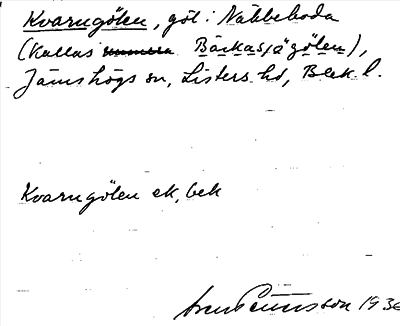 Kvarngölen, göl i Näbbeboda
(Kallas Bäckasjögölen),
Jämshögs sn, Listers hd, Blek. l.
Kvarngölen ek, bek
1936